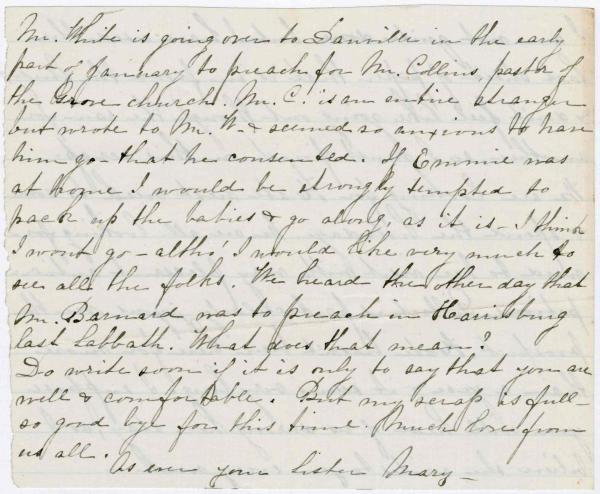 Mr. White is going over to Danville in the early
part of January to preach for Mr. Collins, pastor of
the Grove church. Mr. C. is an entire stranger
but wrote to Mr. W - & seemed so anxious to have
him go - that he consented. If Emmie was
at home I would be strongly tempted to
pack up the babies & go along, as it is - I think
I wont go - altho' I would like very much to
see all the folks. We heard the other day that
Mr. Barnard was to preach in Harrisburg
last Sabbath. What does that mean?
Do write soon if it is only to say that you are
well & comfortable. But my scrap is full -
so good bye for this time. Much love from
us all.
As ever your sister Mary -